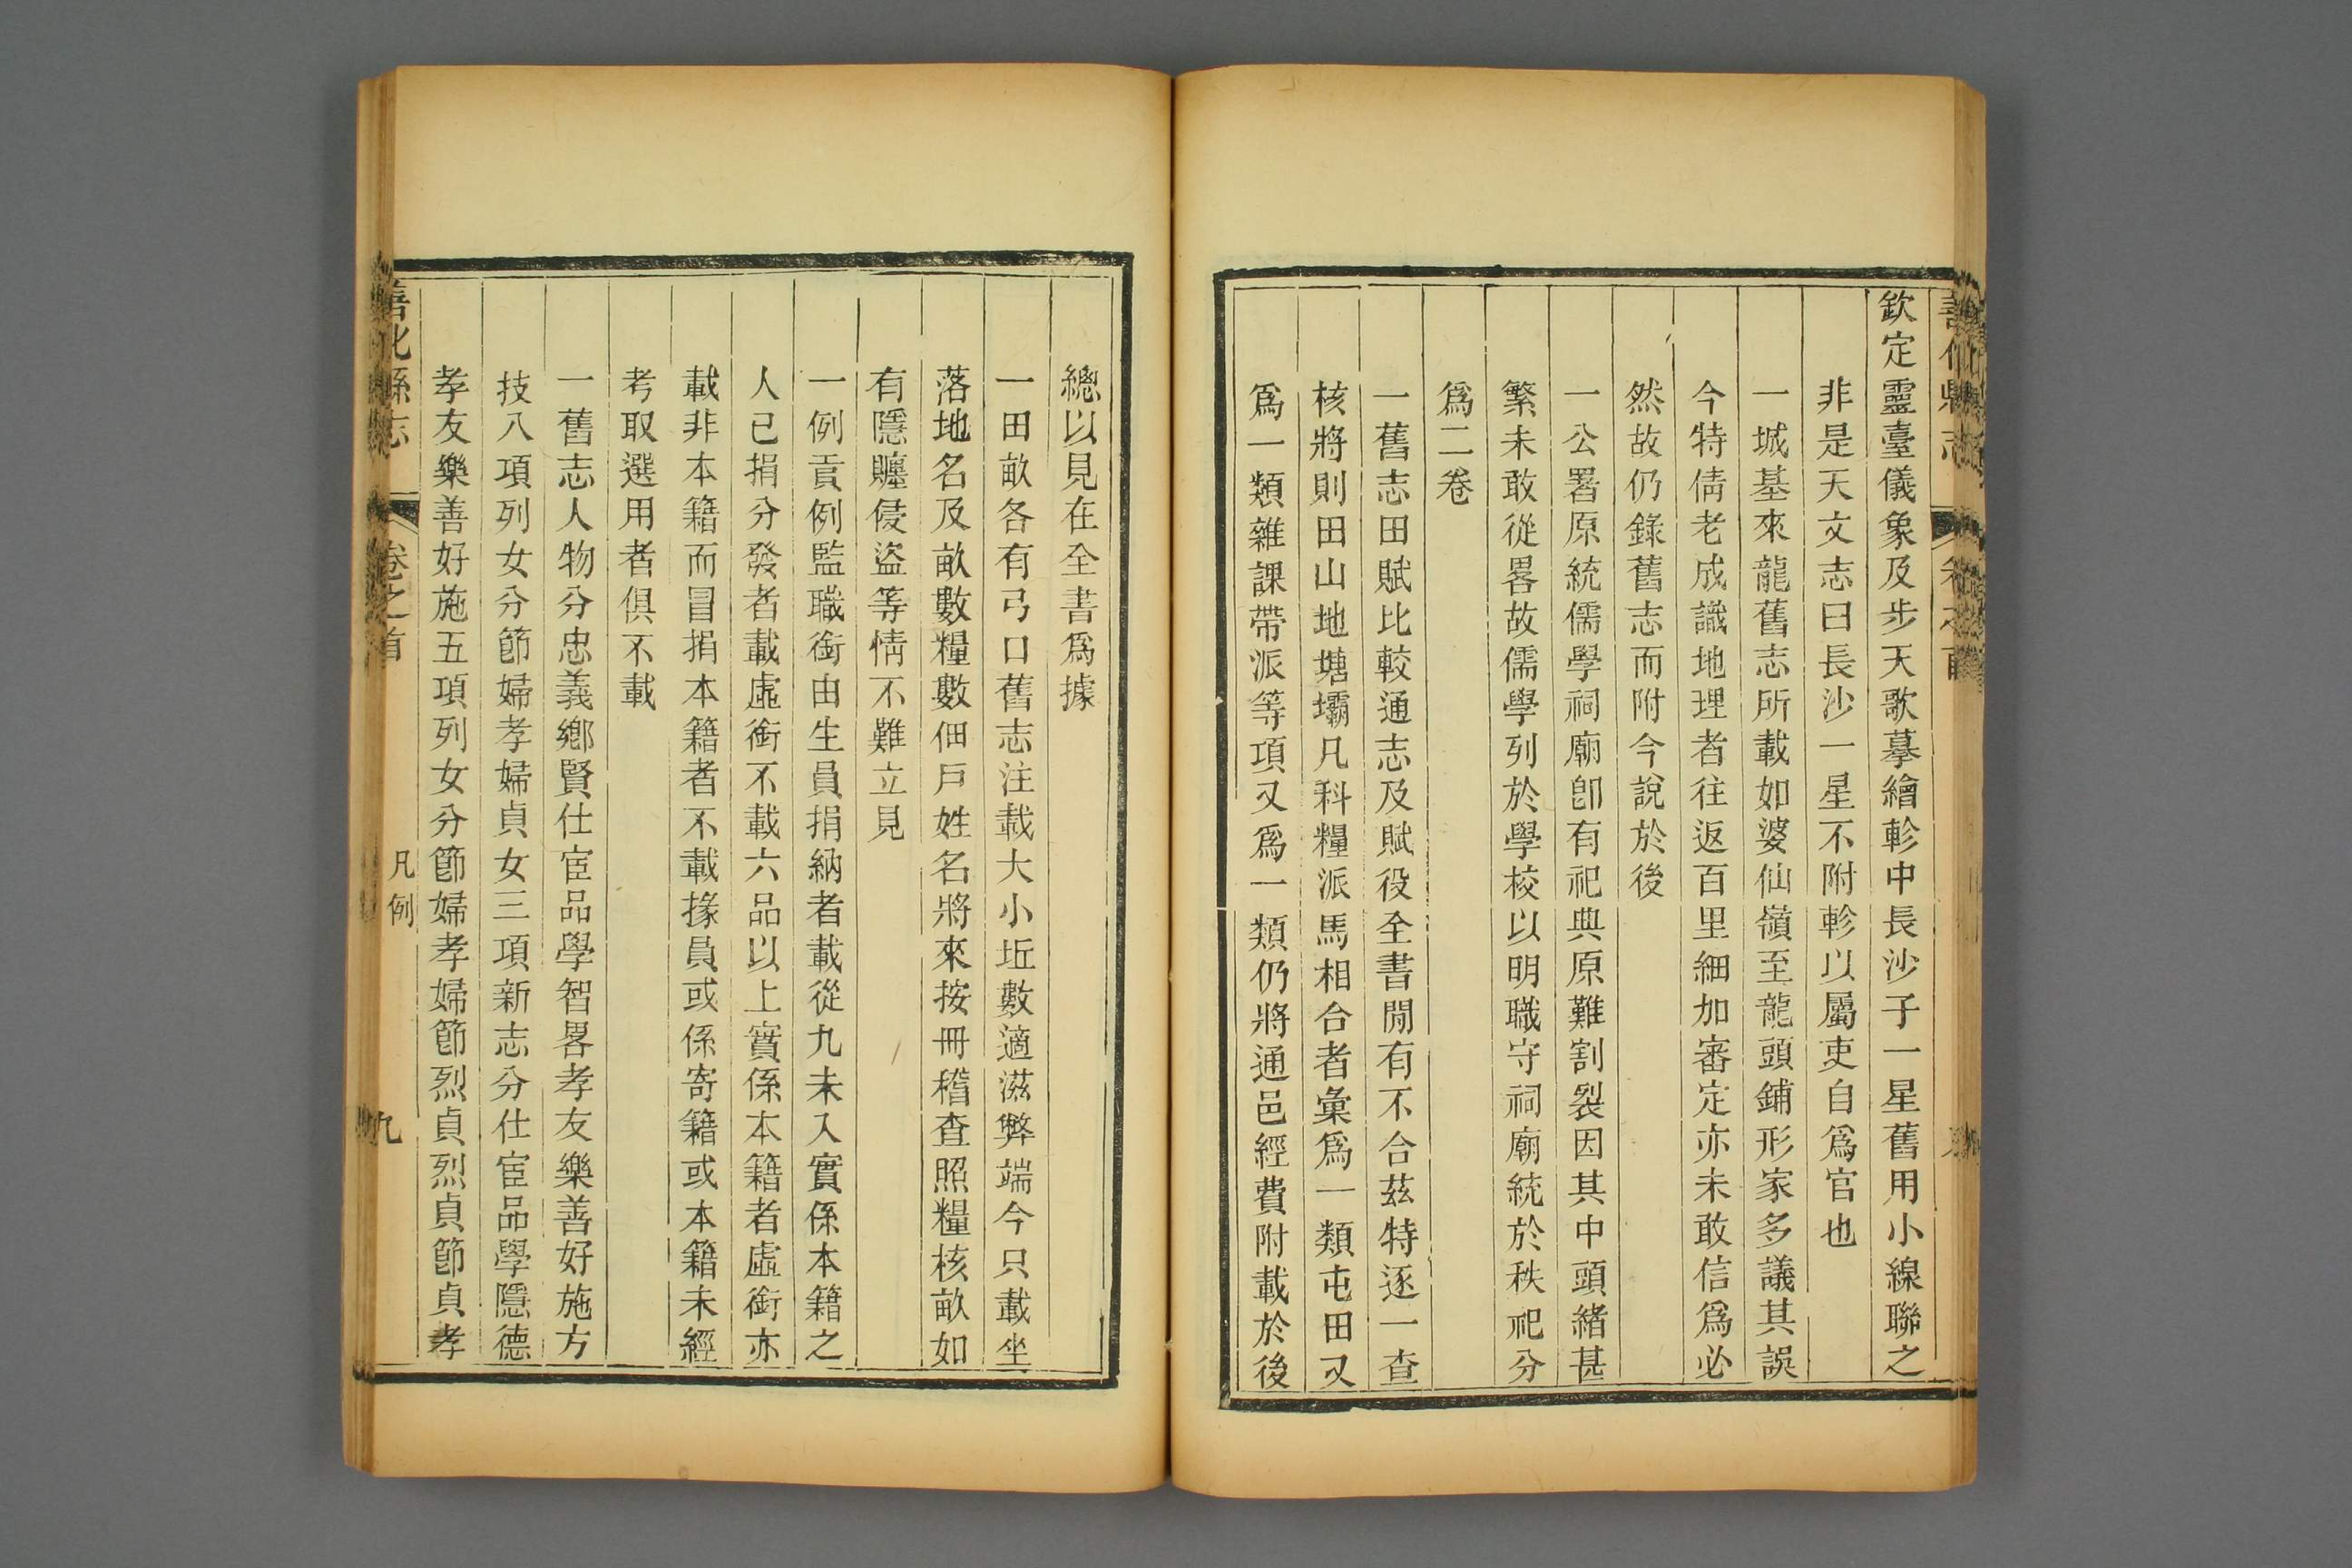 欽定靈臺儀象及步天歌摹繪軫中長沙子一星舊用小線聯之
非是天文志曰長沙一星不附軫以屬吏自爲官也
一城基來龍舊志所載如婆仙嶺至龍頭鋪形家多議其誤
今特倩老成識地理者往返百里細加審定亦未敢信爲必
然故仍錄舊志而附今說於後
一公署原統儒學祠廟卽有祀典原難割裂因其中頭緒甚
繁未敢從畧故儒學列於學校以明職守祠廟統於秩祀分
爲二卷
一舊志田賦比較通志及賦役全書閒有不合茲特逐一查
核將則田山地塘壩凡科糧派馬相合者彙爲一類屯田又
爲一類雜課帶派等項又爲一類仍將通邑經費附載於後
總以見在全書爲據
一田畝各有弓口舊志注載大小坵數適滋弊端今只載坐
落地名及畝數糧數佃戶姓名將來按冊稽查照糧核畝如
有隱贍侵盜等情不難立見
一例貢例監職銜由生員捐納者載從九未入實係本籍之
人已捐分發者載虛銜不載六品以上實係本籍者虛銜亦
載非本籍而冒捐本籍者不載掾員或係寄籍或本籍未經
考取選用者俱不載
一舊志人物分忠義鄉賢仕宦品學智畧孝友樂善好施方
技八項列女分節婦孝婦貞女三項新志分仕宦品學隱德
孝友樂善好施五項列女分節婦孝婦節烈貞烈貞節貞孝
善化縣志
卷之首
凡例
九